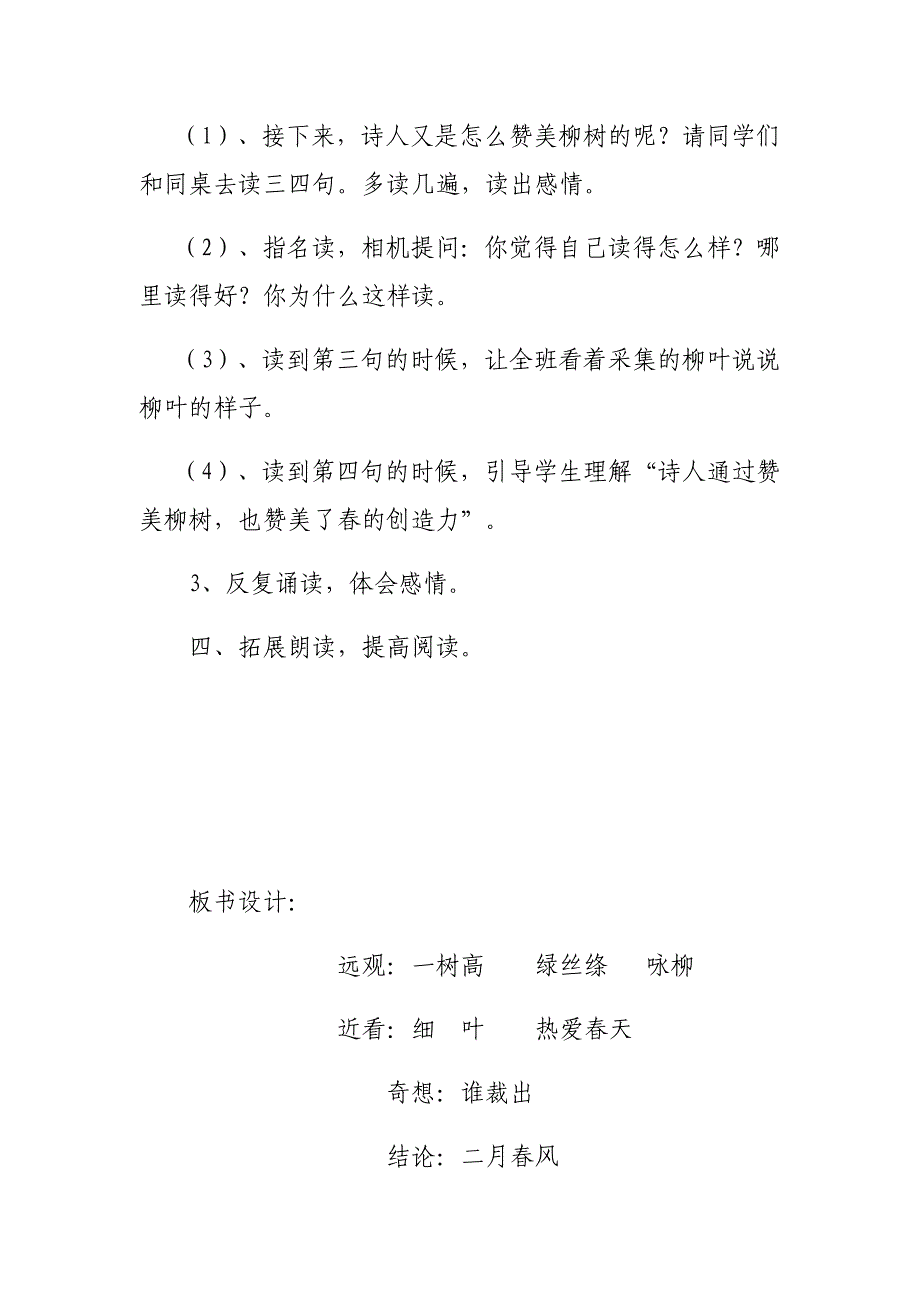 （1）、接下来，诗人又是怎么赞美柳树的呢？请同学们
和同桌去读三四句。多读几遍，读出感情。
（2）、指名读，相机提问：你觉得自己读得怎么样？哪
里读得好？你为什么这样读。
（3）、读到第三句的时候，让全班看着采集的柳叶说说
柳叶的样子。
（4）、读到第四句的时候，引导学生理解“诗人通过赞
美柳树，也赞美了春的创造力”。
3、反复诵读，体会感情。
四、拓展朗读，提高阅读。
板书设计：
远观：一树高 绿丝绦 咏柳
近看：细 叶 热爱春天
奇想：谁裁出
结论：二月春风